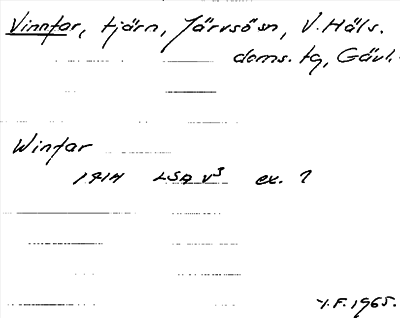 Vinnfar, tjärn, Järvsö sn, V. Häls.
doms. tg, Gävl.
Winfar
1914 LSA V3 ex. 1
Y.F. 1965.